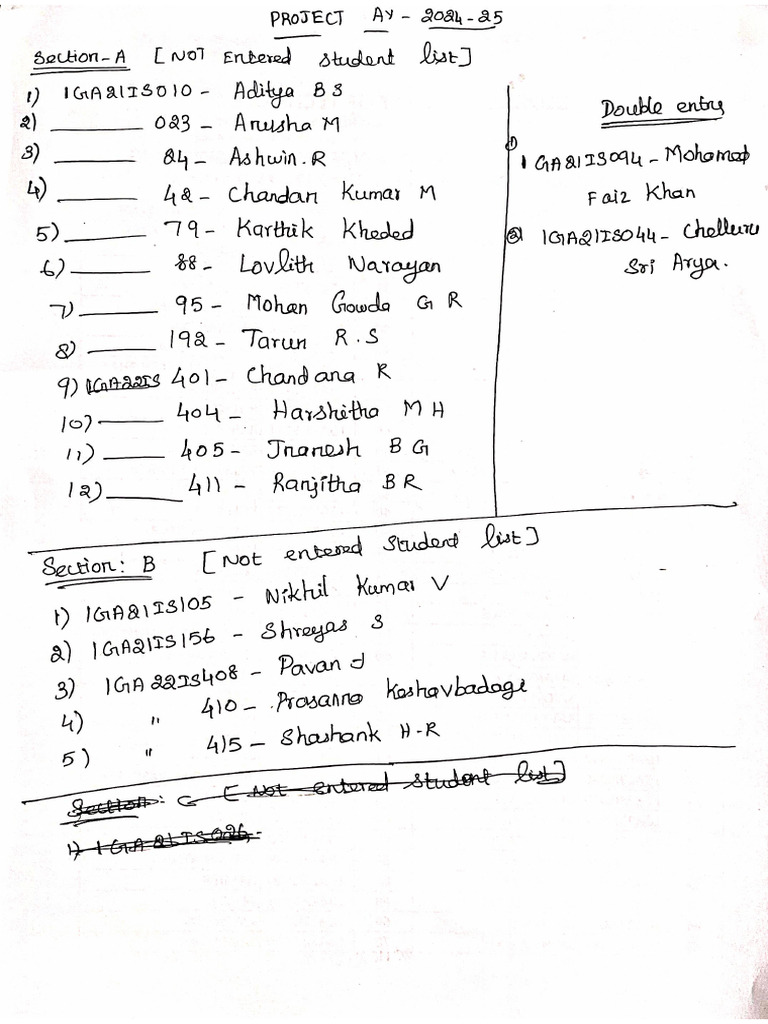 PROJECT AY - 2024-25
Section-A [NOT Entered student list]
1) 1GA21IS010 - Aditya B S
2) ________ 023 - Anusha M
3) ________ 24 - Ashwin.R
4) ________ 42 - Chandan Kumar M
5) ________ 79 - Karthik Kheded
6) ________ 88 - Lovlith Narayan
7) ________ 95 - Mohan Gowda G R
8) ________ 192 - Tarun R.S
9) 1GA22IS 401 - Chandana R
10) ________ 404 - Harshitha M H
11) ________ 405 - Jnanesh B G
12) ________ 411 - Ranjitha B R
Double entry
① 1GA21IS094 - Mohamad
Faiz Khan
② 1GA21IS044 - Chelluru
Sri Arya.
Section: B [Not entered student list]
1) 1GA21IS105 - Nikhil Kumar V
2) 1GA21IS156 - Shreyas S
3) 1GA22IS408 - Pavan J
4) " 410 - Prasanna Keshavbadagi
5) " 415 - Shashank H-R
Section: C [Not entered student list]
1) 1GA21IS026-